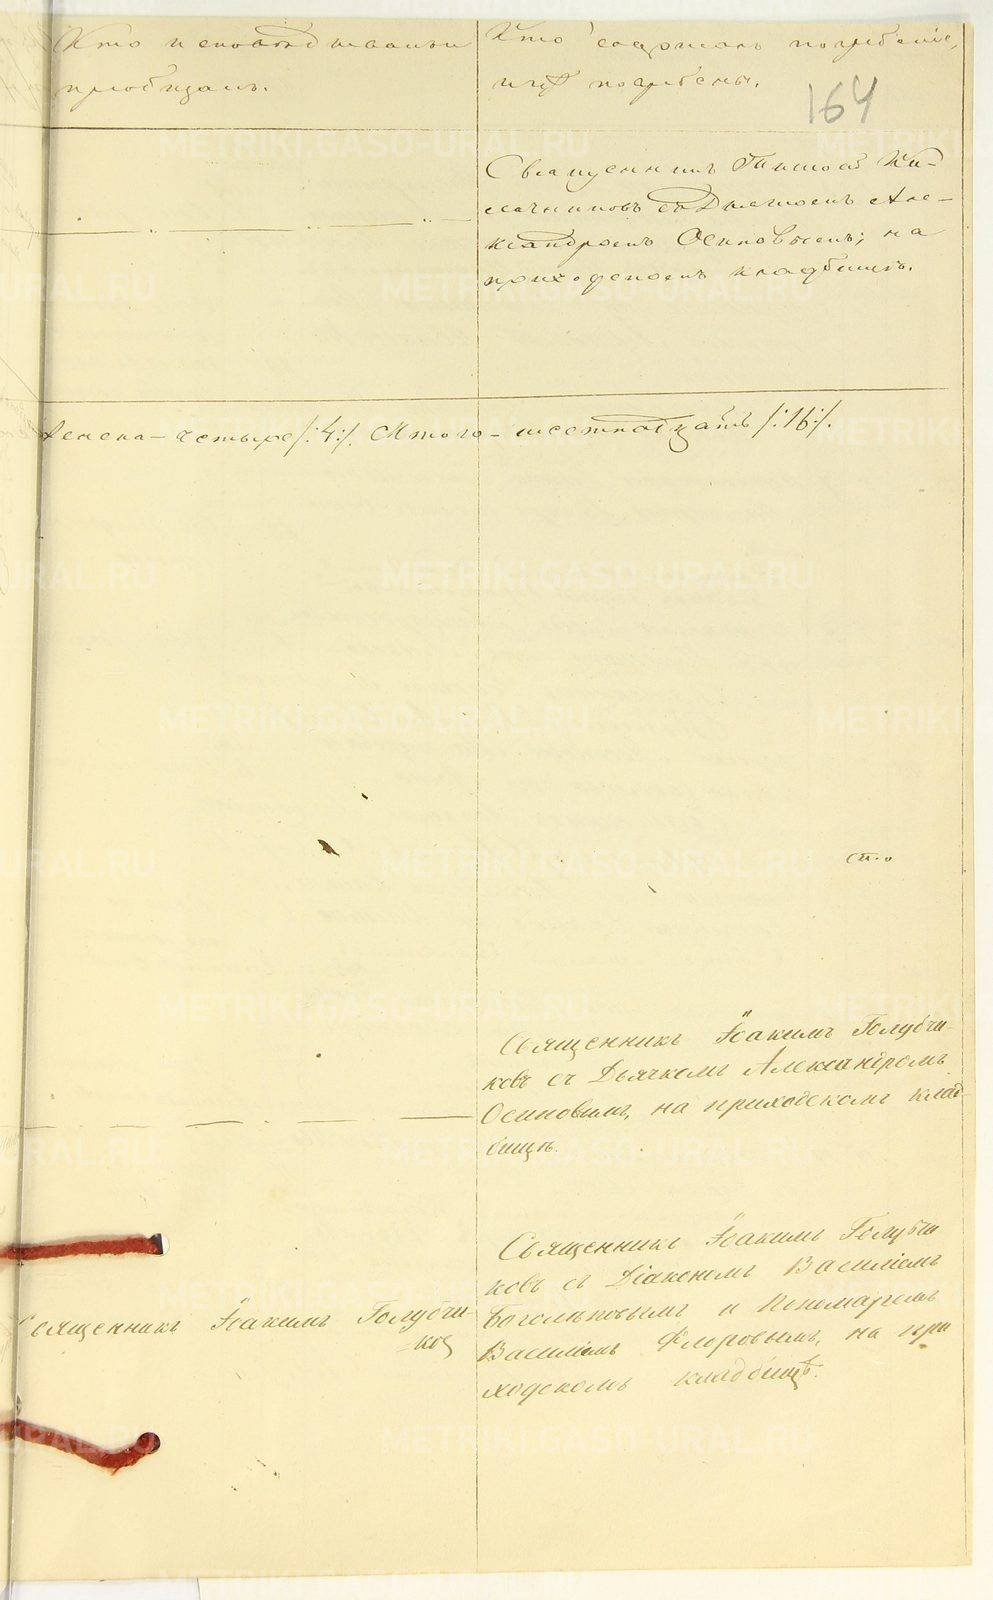 Кто исповѣдывалъ и
пріобщалъ.
Кто совершалъ погребеніе,
и гдѣ погребены.
164
Священникъ Титовъ
съ Дьячкомъ Але-
ксандромъ Осиповымъ; на
приходскомъ кладбищѣ.
женска – четыре /:4:/. Итого – шестнадцать /:16:/.
Священникъ Іоакимъ Голубчи-
ковъ съ Дьячкомъ Александромъ
Осиповымъ, на приходскомъ клад-
бищѣ.
Священникъ Іоакимъ Голубчи
ковъ съ Діакономъ Василіемъ
Боголѣповымъ и Пономаремъ
Василіемъ Флоровымъ, на при
ходскомъ кладбищѣ.
Священникъ Іоакимъ Голубчи-
ковъ
METRIKI.GASO-URAL.RU